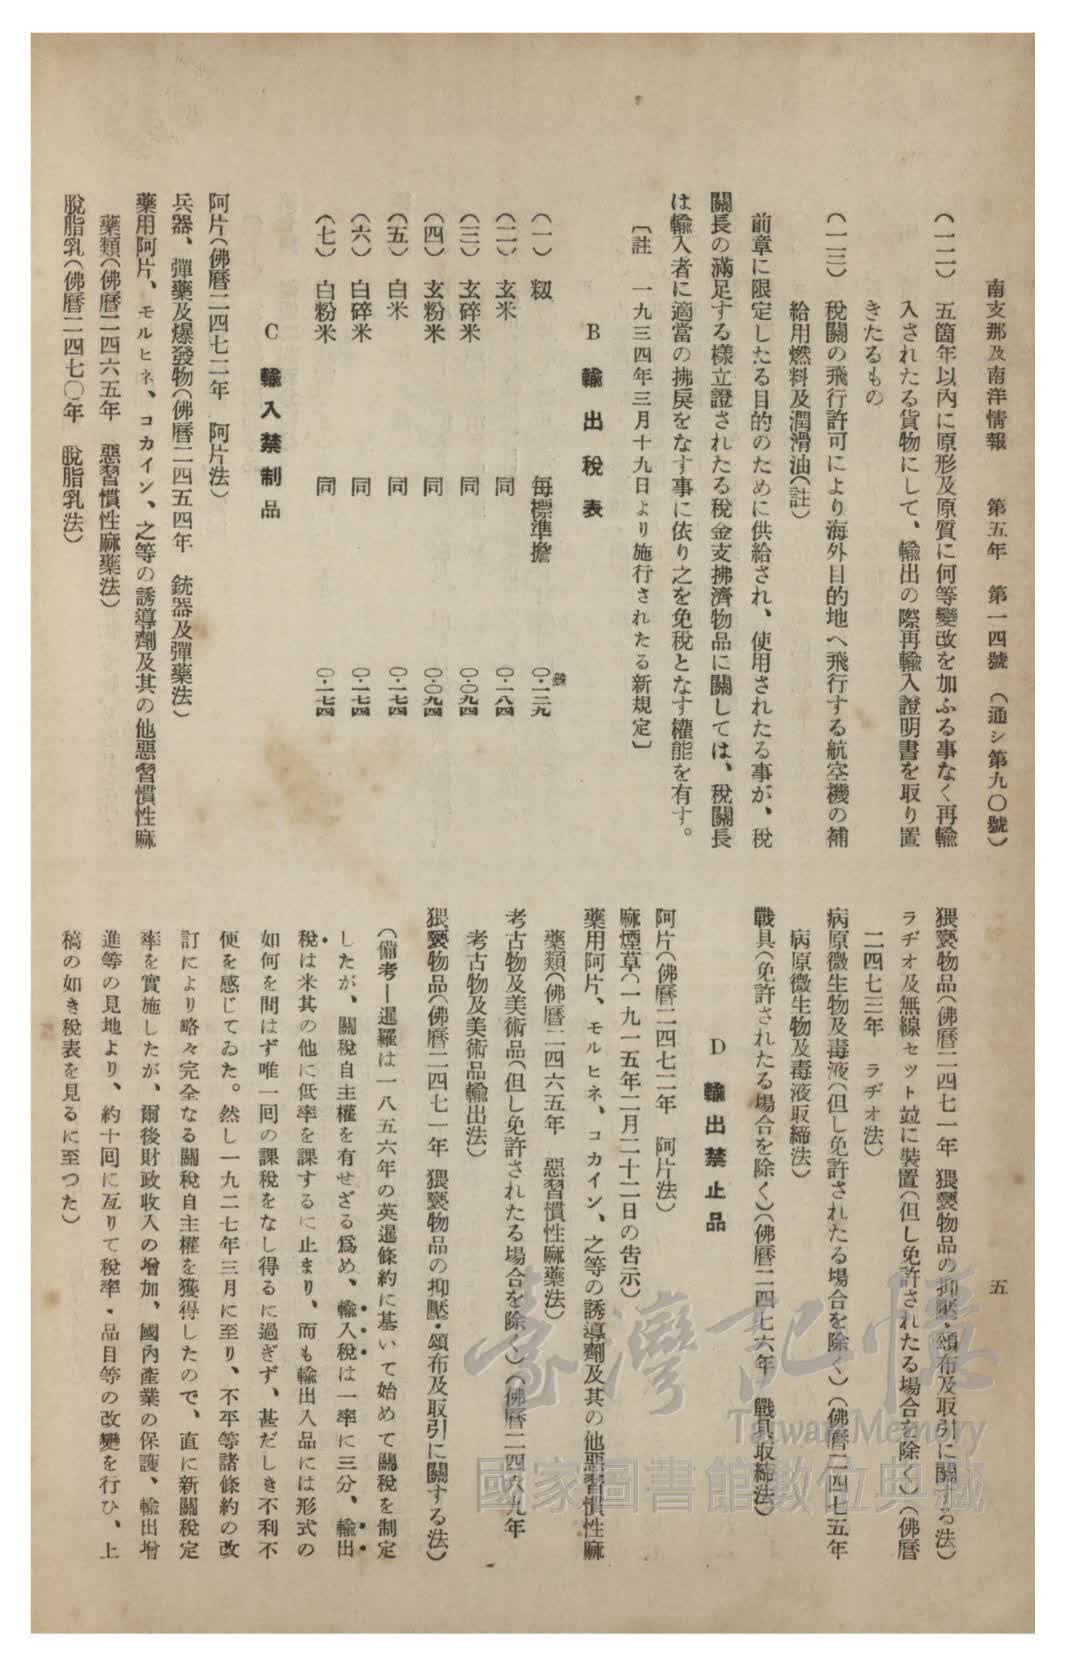 南支那及南洋情報　第五年　第一四號　（通シ第九〇號）　五
（一二）　五箇年以內に原形及原質に何等變改を加ふる事なく再輸
入されたる貨物にして、輸出の際再輸入證明書を取り置
きたるもの
（一三）　稅關の飛行許可により海外目的地へ飛行する航空機の補
給用燃料及潤滑油（註）
前章に限定したる目的のために供給され、使用されたる事が、稅
關長の滿足する樣立證されたる稅金支拂濟物品に關しては、稅關長
は輸入者に適當の拂戾をなす事に依り之を免稅となす權能を有す。
〔註　一九三四年三月十九日より施行されたる新規定〕
B　輸出稅表
（一）　籾　每標準擔　〇・一二九
（二）　玄米　同　〇・一八四
（三）　玄碎米　同　〇・〇九四
（四）　玄粉米　同　〇・〇九四
（五）　白米　同　〇・一七四
（六）　白碎米　同　〇・一七四
（七）　白粉米　同　〇・一七四
C　輸入禁制品
阿片（佛曆二四七二年　阿片法）
兵器、彈藥及爆發物（佛曆二四五四年　銃器及彈藥法）
藥用阿片、モルヒネ、コカイン、之等の誘導劑及其の他惡習慣性麻
藥類（佛曆二四六五年　惡習慣性麻藥法）
脫脂乳（佛曆二四七〇年　脫脂乳法）
猥褻物品（佛曆二四七一年　猥褻物品の抑壓・頒布及取引に關する法）
ラヂオ及無線セット竝に裝置（但し免許されたる場合を除く）（佛曆
二四七三年　ラヂオ法）
病原微生物及毒液（但し免許されたる場合を除く）（佛曆二四七五年
病原微生物及毒液取締法）
戰具（免許されたる場合を除く）（佛曆二四七六年　戰具取締法）
D　輸出禁止品
阿片（佛曆二四七二年　阿片法）
麻煙草（一九一五年二月二十二日の吿示）
藥用阿片、モルヒネ、コカイン、之等の誘導劑及其の他惡習慣性麻
藥類（佛曆二四六五年　惡習慣性麻藥法）
考古物及美術品（但し免許されたる場合を除く）（佛曆二四六九年
考古物及美術品輸出法）
猥褻物品（佛曆二四七一年　猥褻物品の抑壓・頒布及取引に關する法）
（備考ー暹羅は一八五六年の英暹條約に基いて始めて關稅を制定
したが、關稅自主權を有せざる爲め、輸入稅は一率に三分、輸出
稅は米其の他に低率を課するに止まり、而も輸出入品には形式の
如何を問はず唯一回の課稅をなし得るに過ぎず、甚だしき不利不
便を感じてゐた。然し一九二七年三月に至り、不平等諸條約の改
訂により略々完全なる關稅自主權を獲得したので、直に新關稅定
率を實施したが、爾後財政收入の增加、國內產業の保護、輸出增
進等の見地より、約十回に亙りて稅率・品目等の改變を行ひ、上
稿の如き稅表を見るに至つた）
臺灣記憶
Taiwan Memory
國家圖書館數位典藏